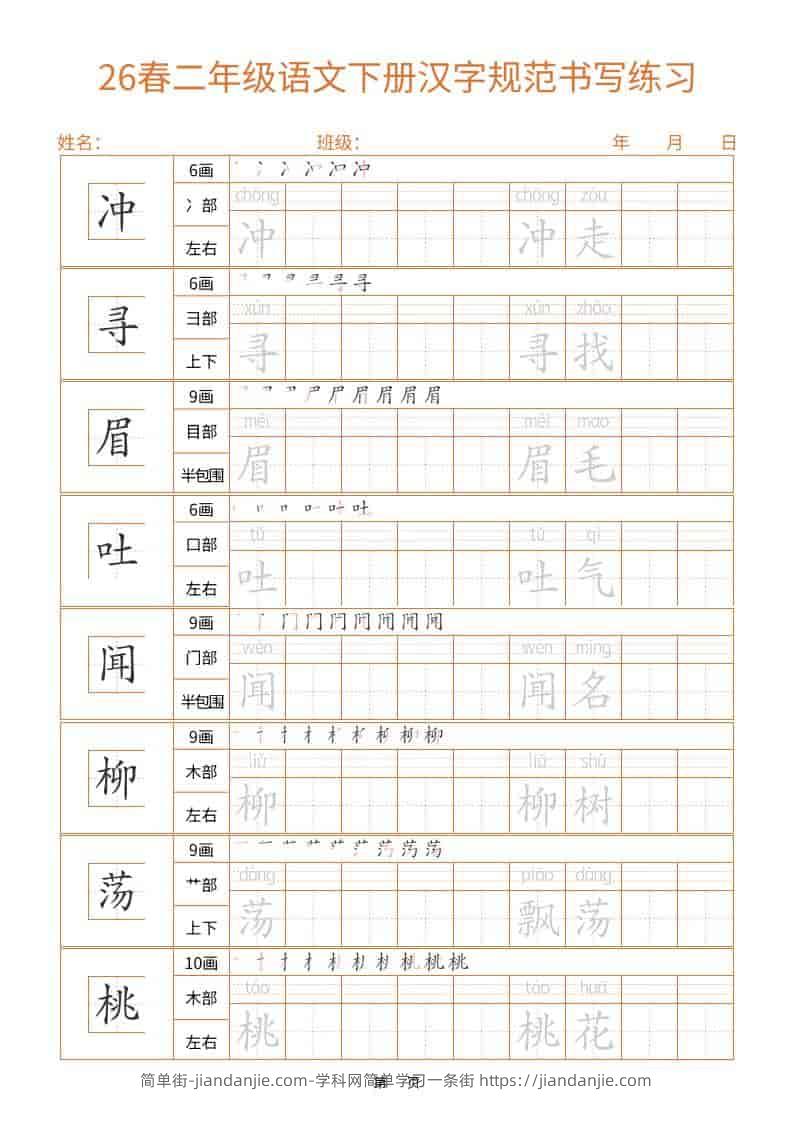 26春二年级语文下册汉字规范书写练习
姓名： 班级： 年 月 日
冲
6画
冫部
左右
chōng chōng zǒu
冲 冲 走
寻
6画
彐部
上下
xún xún zhǎo
寻 寻 找
眉
9画
目部
半包围
méi méi mao
眉 眉 毛
吐
6画
口部
左右
tǔ tǔ qì
吐 吐 气
闻
9画
门部
半包围
wén wén míng
闻 闻 名
柳
9画
木部
左右
liǔ liǔ shù
柳 柳 树
荡
9画
艹部
上下
dàng piāo dàng
荡 飘 荡
桃
10画
木部
左右
táo táo huā
桃 桃 花
简单街-jiandanjie.com-学科网简单学习一条街 https://jiandanjie.com
第 页